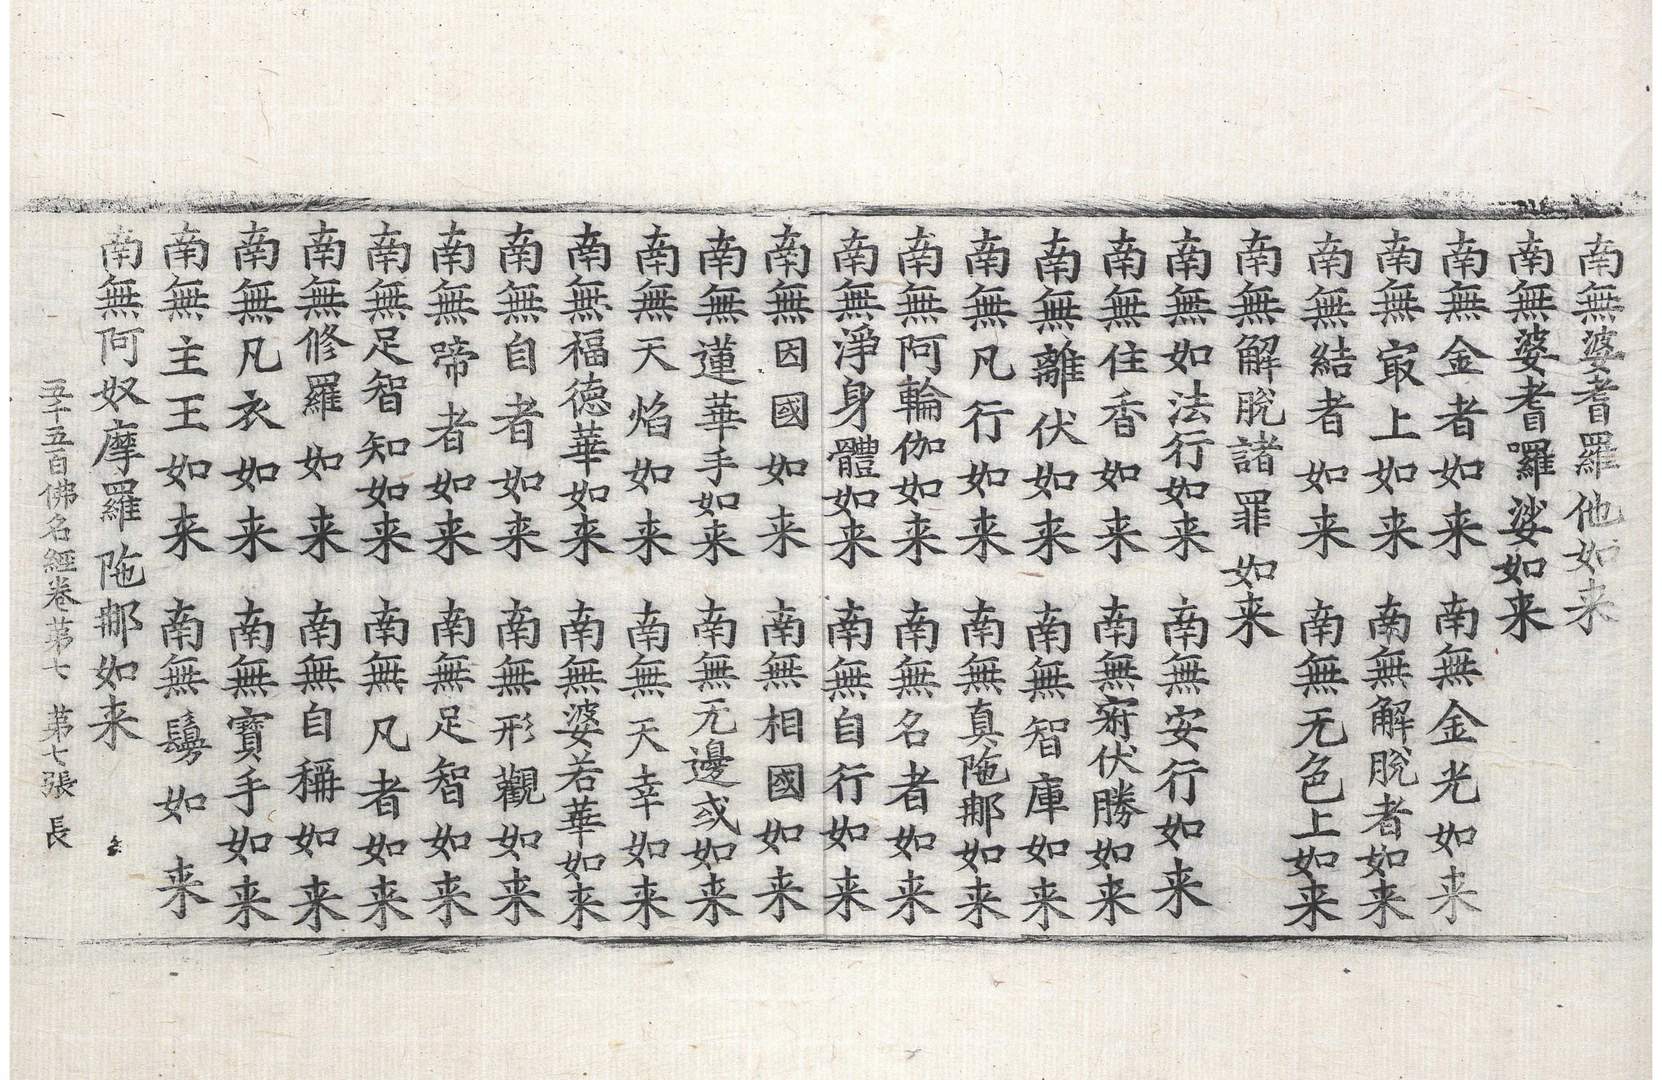 南無婆耆羅他如来
南無婆耆囉娑如来
南無金者如来 南無金光如来
南無㝡上如来 南無解脫者如来
南無結者如来 南無无色上如来
南無解脫諸罪如来
南無如法行如来 南無安行如来
南無住香如来 南無䆠伏勝如来
南無離伏如来 南無智庫如来
南無凡行如来 南無真陁那如来
南無阿輪伽如来 南無名者如来
南無淨身體如来 南無自行如来
南無因國如来 南無相國如来
南無蓮華手如来 南無无邊或如来
南無天焰如来 南無天幸如来
南無福德華如来 南無婆若華如来
南無自者如来 南無形觀如来
南無啼者如来 南無足智如来
南無足智知如来 南無凡者如来
南無修羅如来 南無自稱如来
南無凡衣如来 南無寶手如来
南無主王如来 南無鬘如来
南無阿奴摩羅陁那如来
五千五百佛名經卷第七 第七張 長